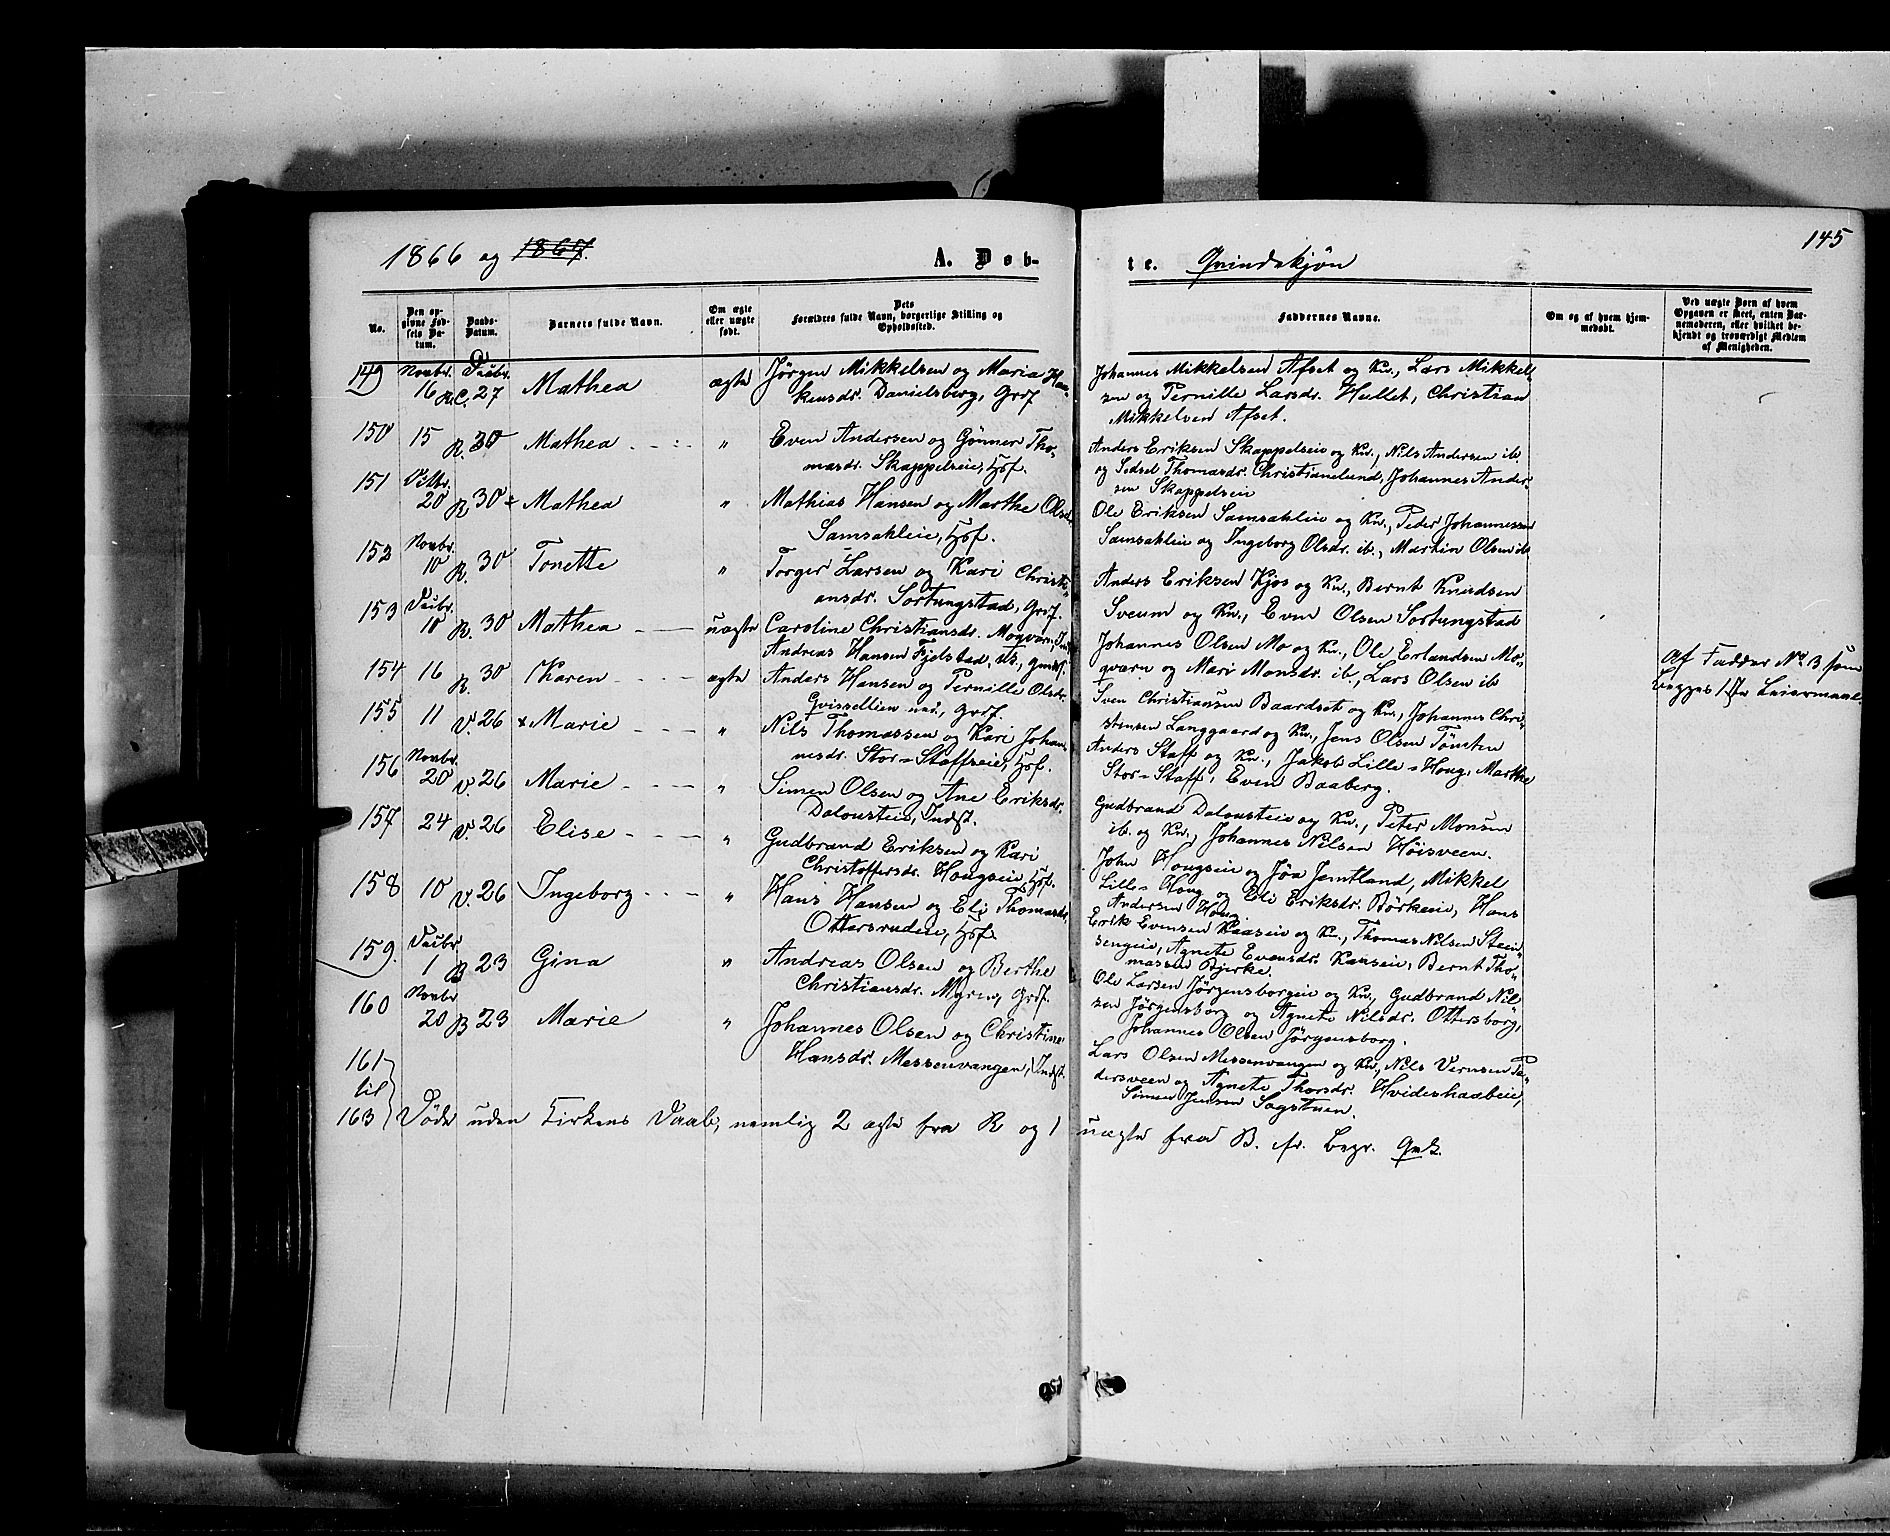 145
1866 og 1867.
A. Døb-
te. Qvindekjøn
No.
Den op-
givne Fød-
sels Da-
tum.
Daabs-
Datum.
Barnets fulde Navn.
Om ægte
eller uægte
født.
Dets
Forældres fulde Navn, borgerlige Stilling og
Opholdssted.
Faddernes Navne.
Om og af hvem hjem-
medøbt.
Ved uægte Børn af hvem
Opgaven er skeet, enten Bar-
nemoderen, eller hvilket be-
kjendt og troværdigt Medlem
af Menigheden.
149 Novbr. 16 Decbr. 27 Mathea ægte Jörgen Mikkelsen og Maria Haa-
kensdr. Danielsberg, Grdf
Johannes Mikkelsen Afset og Kv., Lars Mikkel-
sen og Pernille Larsdr. Hullet, Christian
Mikkelsen Afset.
150 15 R. 30 Mathea " Even Andersen og Gönner Tho-
masdr. Skappelseie, Hsf.
Anders Eriksen Skappelseie og Kv., Nils Andersen ib.
og Sidsel Thomasdr. Christianelund, Johannes Ander-
sen Skappelseie
151 Octbr. 20 R. 30 Mathea " Mathias Hansen og Marthe Olsdr.
Samsahleie, Hsf.
Ole Eriksen Samsahleie og Kv., Peder Johannessen
Samsahleie og Ingeborg Olsdr. ib., Martin Olsen ib.
152 Novbr. 10 R. 30 Tonette " Torger Larsen og Kari Christi-
ansdr. Sortungstad, Grdf.
Anders Eriksen Kjos og Kv., Bernt Knudsen
Sveum og Kv., Even Olsen Sortungstad
153 Decbr. 10 R. 30 Mathea uægte Caroline Christiansdr. Moqværn, Ind.
Andreas Hansen Fjelstad, U., gmdsf.
Johannes Olsen Mo og Kv., Ole Erlandsen Mo-
qværn og Mari Monsdr. ib., Lars Olsen ib.
Af Fadder No 3 som
begges 1ste Leiermaal
154 16 R. 30 Karen ægte Anders Hansen og Pernille Olsdr.
Qvissellien ned., Grdf.
Sven Christiansen Baardset og Kv., Johannes Chri-
stensen Langgaard og Kv., Jens Olsen Tömten
155 11 V. 26 Marie " Nils Thomassen og Kari Johan-
nesdr. Stor-Staffseie, Hsf.
Anders Staff og Kv., Jakob Lille-Houg, Marthe
Stor-Staff, Even Baaberg.
156 Novbr. 20 V. 26 Marie " Simen Olsen og Ane Eriksdr.
Dalousteie, Indst.
Gudbrand Dalousteie og Kv., Peter Monsen
ib. og Kv., Johannes Nilsen Höisveen.
157 24 V. 26 Elise " Gudbrand Eriksen og Kari
Christoffersdr. Hougseie, Hsf.
John Hougseie og Jöa Jemtland, Mikkel
Lille-Houg og Eli Eriksdr. Börkeeie, Hans
Andersen Houg.
158 10 V. 26 Ingeborg " Hans Hansen og Eli Thomasdr.
Ottersrudeie, Hsf.
Erik Evensen Kaaseie og Kv., Thomas Nilsen Steen-
sengeie, Agnete Evensdr. Kaaseie, Bernt Tho-
massen Bjerke.
159. Decbr. 1 B 23 Gina " Andreas Olsen og Berthe
Christiansdr. Myren, Grdf.
Ole Larsen Jörgensborgeie og Kv., Gudbrand Nil-
sen Jörgensborg og Agnete Nilsdr. Ottersborg,
Johannes Olsen Jörgensborg.
160 Novbr 20 B 23 Marie " Johannes Olsen og Christine
Hansdr. Messenvangen, Indst
Lars Olsen Messenvangen og Kv., Nils Vernsen Pe-
dersveen og Agnete Thorsdr. Hvideshaabeie,
Simen Jensen Sagstuen.
161
til
163 Döde uden Kirkens Daab, nemlig 2 ægte fra R og 1 uægte fra B. cfr. Begr. Qvk.